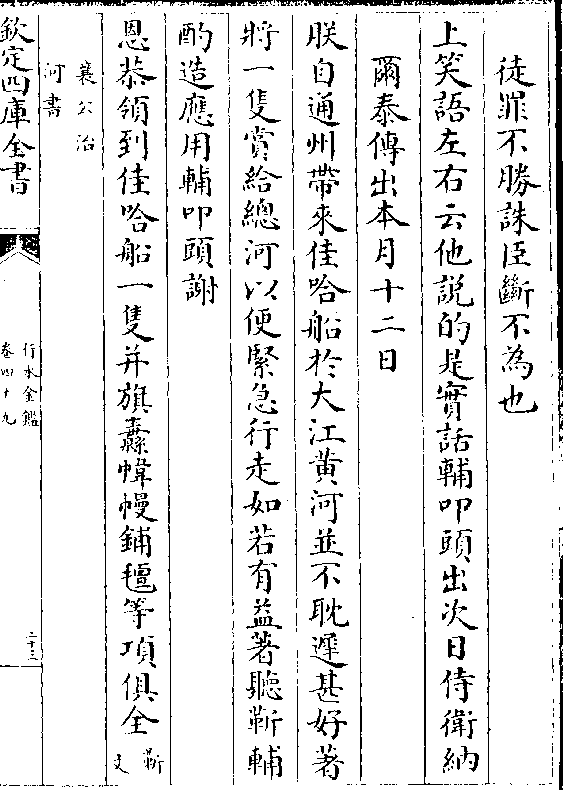 徒罪不勝誅臣斷不為也
上笑語左右云他説的是實話輔叩頭出次日侍衛納
爾泰傳出本月十二日
朕自通州帶來佳哈船於大江黄河並不耽遲甚好著
將一隻賞給總河以便緊急行走如若有益著聽靳輔
酌造應用輔叩頭謝
恩恭領到佳哈船一隻并旗纛幃幔鋪氊等項俱全靳文
襄公治
河書
欽定四庫全書
行水金鑑
卷四十九
二十三